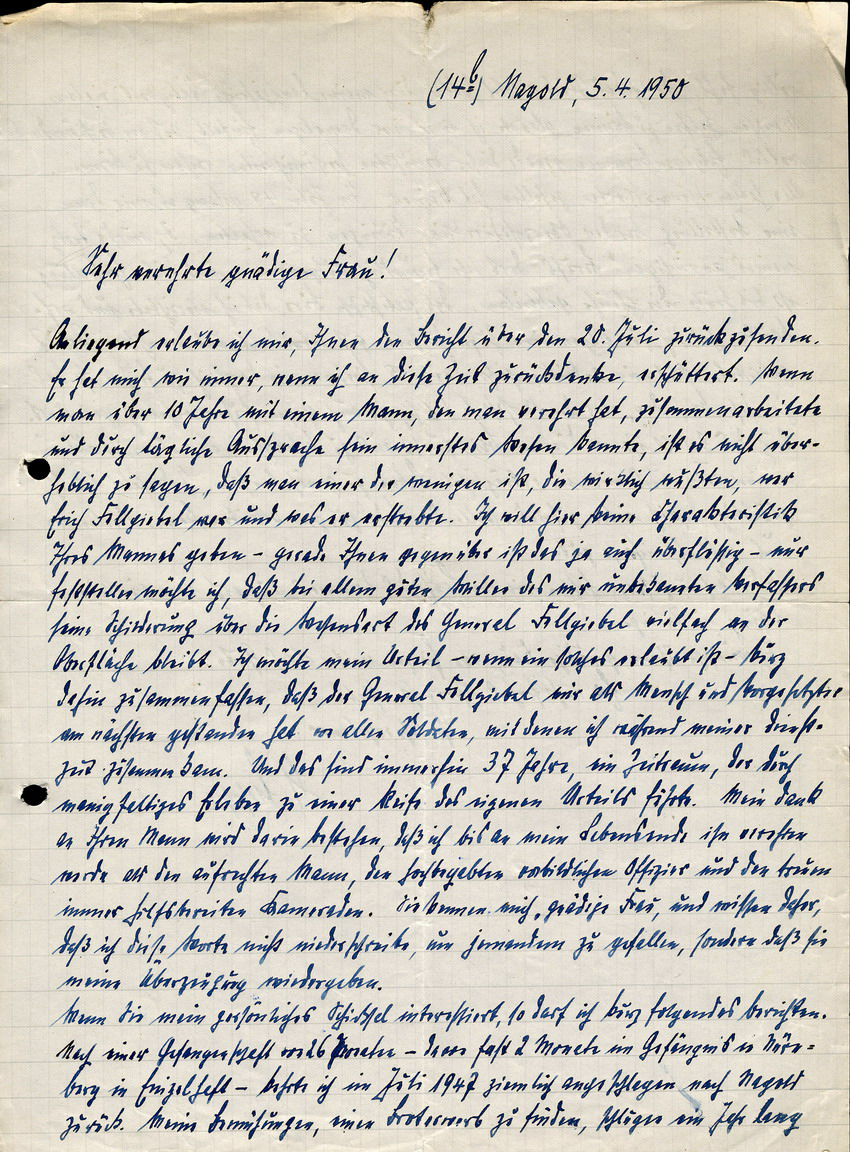 (14b) Nagold, 5.4.1950
Sehr verehrte gnädige Frau!
Anliegend erlaube ich mir, Ihnen den Bericht über den 20. Juli zurückzusenden.
Er hat mich wie immer, wenn ich an diese Zeit zurückdenke, erschüttert. Wenn
man über 10 Jahre mit einem Mann, den man verehrt hat, zusammenarbeitete
und durch tägliche Aussprache sein innerstes Wesen kannte, ist es nicht über-
heblich zu sagen, daß man einer der wenigen ist, die wirklich wußten, wer
Erich Fellgiebel war und was er erstrebte. Ich will hier keine Charakteristik
Ihres Mannes geben – gerade Ihnen gegenüber ist das ja auch überflüssig – nur
feststellen möchte ich, daß bei allem guten Willen des mir unbekannten Verfassers
seine Schilderung über die Wesensart des General Fellgiebel vielfach an der
Oberfläche bleibt. Ich möchte mein Urteil – wenn ein solches erlaubt ist – kurz
dahin zusammenfassen, daß der General Fellgiebel mir als Mensch und Vorgesetzter
am nächsten gestanden hat von allen Soldaten, mit denen ich während meiner Dienst-
zeit zusammenkam. Und das sind immerhin 37 Jahre, ein Zeitraum, der durch
manigfaltiges Erleben zu einer Reife des eigenen Urteils führte. Mein Dank
an Ihren Mann wird darin bestehen, daß ich bis an mein Lebensende ihn verehren
werde als den aufrechten Mann, den hochbegabten vorbildlichen Offizier und den treuen
immer hilfsbereiten Kameraden. Sie kennen mich, gnädige Frau, und wissen daher,
daß ich diese Worte nicht niederschreibe, um jemandem zu gefallen, sondern daß sie
meine Überzeugung wiedergeben.
Wenn Sie mein persönliches Schicksal interessiert, so darf ich kurz folgendes berichten.
Nach einer Gefangenschaft von Monaten – davon fast 2 Monate im Gefängnis in Nürn-
berg in Einzelhaft – kehrte ich im Juli 1947 ziemlich angeschlagen nach Nagold
zurück. Meine Bemühungen, einen Broterwerb zu finden, schlugen ein Jahr lang